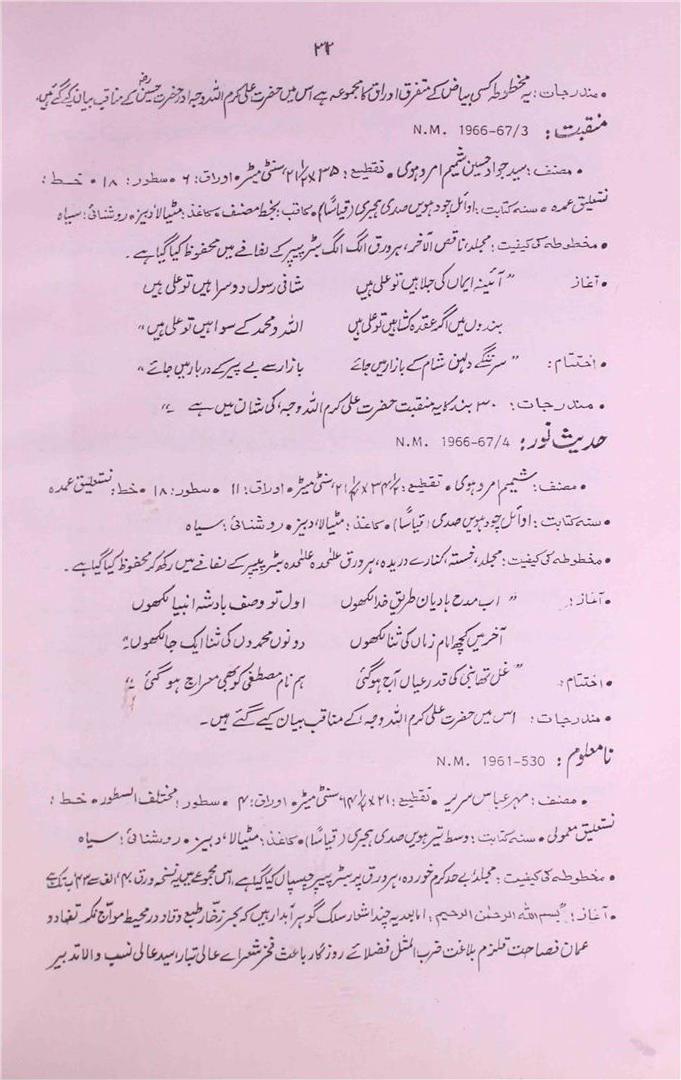 ۳۲
• مندرجات: یہ مخطوطہ کسی بیاض کے متفرق اوراق کا مجموعہ ہے اس میں حضرت علی کرم اللہ وجہہ اور حضرت حسینؓ کے مناقب بیان کئے گئے ہیں۔
منقبت: N.M. 1966-67/3
• مصنف: سید جواد حسین شمیم امروہوی • تقطیع: ۳۵×۲۱/۲ سنٹی میٹر • اوراق: ۶ • سطور: ۱۸ • خط:
نستعلیق عمدہ • سنہ کتابت: اوائل چودہویں صدی ہجری (قیاساً) • کاتب: بخط مصنف • کاغذ: مٹیالا، دبیز • روشنائی: سیاہ
• مخطوطہ کی کیفیت: مجلد، ناقص الآخر، ہر ورق الگ الگ بٹر پیپر کے لفافے میں محفوظ کیا گیا ہے۔
• آغاز "آئینہ ایماں کی جلا ہیں تو علی ہیں ثانی رسول دوسرا ہیں تو علی ہیں
بندوں میں اگر عقدہ کشا ہیں تو علی ہیں اللہ و محمد کے سوا ہیں تو علی ہیں"
• اختتام: "سر ننگے دلہن شام کے بازار میں جائے بازار سے بے پیر کے دربار میں جائے"
• مندرجات: ۳۰ بند کا یہ منقبت حضرت علی کرم اللہ وجہہ، کی شان میں ہے۔"
حدیث نور: N.M. 1966-67/4
• مصنف: شمیم امروہوی • تقطیع: سنٹی میٹر • اوراق: ۱۱ • سطور: ۱۸ • خط: نستعلیق عمدہ
• سنہ کتابت: اوائل چودہویں صدی (قیاساً) • کاغذ: مٹیالا، دبیز • روشنائی: سیاہ
• مخطوطہ کی کیفیت: مجلد، خستہ، کنارے دریدہ، ہر ورق علٰحدہ علٰحدہ بٹر پیپر کے لفافے میں رکھ کر محفوظ کیا گیا ہے۔
• آغاز: "اب مدح ہادیان طریق خدا لکھوں اول تو وصف بادشہ انبیا لکھوں
آخر میں کچھ امام زماں کی ثنا لکھوں دونوں محمدوں کی ثنا ایک جا لکھوں"
• اختتام: "غل تھا نبی کی قدر عیاں آج ہو گئی ہم نام مصطفیٰ کو بھی معراج ہو گئی"
• مندرجات: اس میں حضرت علی کرم اللہ وجہہ، کے مناقب بیان کیے گئے ہیں۔
نامعلوم: N.M. 1961-530
• مصنف: مہر عباس سریر • تقطیع: ۲۱× سنٹی میٹر • اوراق: ۴ • سطور: مختلف السطور • خط:
نستعلیق معمولی • سنہ کتابت: وسط تیرہویں صدی ہجری (قیاساً) • کاغذ: مٹیالا، دبیز • روشنائی: سیاہ
• مخطوطہ کی کیفیت: مجلد، بے حد کرم خوردہ، ہر ورق پر بٹر پیپر چسپاں کیا گیا ہے، اس مجموعے میں یہ نسخہ ورق ۴۰، الف سے ۴۳ ب تک ہے
• آغاز: "بسم اللہ الرحمٰن الرحیم: اما بعد یہ چند اشعار سلک گوہر آبدار ہیں کہ بحر زخار طبع وقاد در محیط مواج
عمان فصاحت قلزم بلاغت ضرب المثل فضلائے روزگار باعث فخر شعراے عالی تبار اسید عالی نسب والا تدبیر